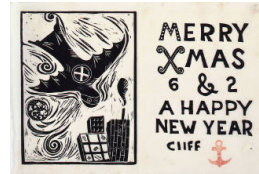 MERRY
XMAS
6 & 2
A HAPPY
NEW YEAR
CLIFF